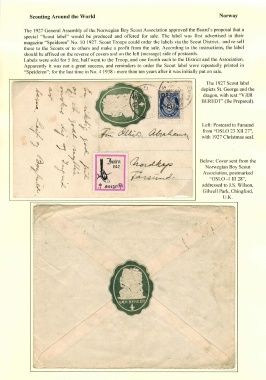 Scouting Around the World
Norway
The 1927 General Assembly of the Norwegian Boy Scout Association approved the Board's proposal that a
special "Scout label" would be produced and offered for sale. The label was first advertised in their
magazine "Speideren" No. 10 1927. Scout Troops could order the labels via the Scout District, and re-sell
these to the Scouts or to others and make a profit from the sale. According to the instructions, the label
should be affixed on the reverse of covers and on the left (message) side of postcards.
Labels were sold for 5 øre, half went to the Troop, and one fourth each to the District and the Association.
Apparently it was not a great success, and reminders to order the Scout label were repeatedly printed in
"Speideren"; for the last time in No. 4 1938 - more than ten years after it was initially put on sale.
The 1927 Scout label
depicts St. George and the
dragon, with text "VÆR
BEREDT" (Be Prepared).
Left: Postcard to Farsund
from "OSLO 23 XII 27",
with 1927 Christmas seal.
Below: Cover sent from the
Norwegian Boy Scout
Association, postmarked
addressed to J.S. Wilson,
Gilwell Park, Chingford,
U.K.
Farsund